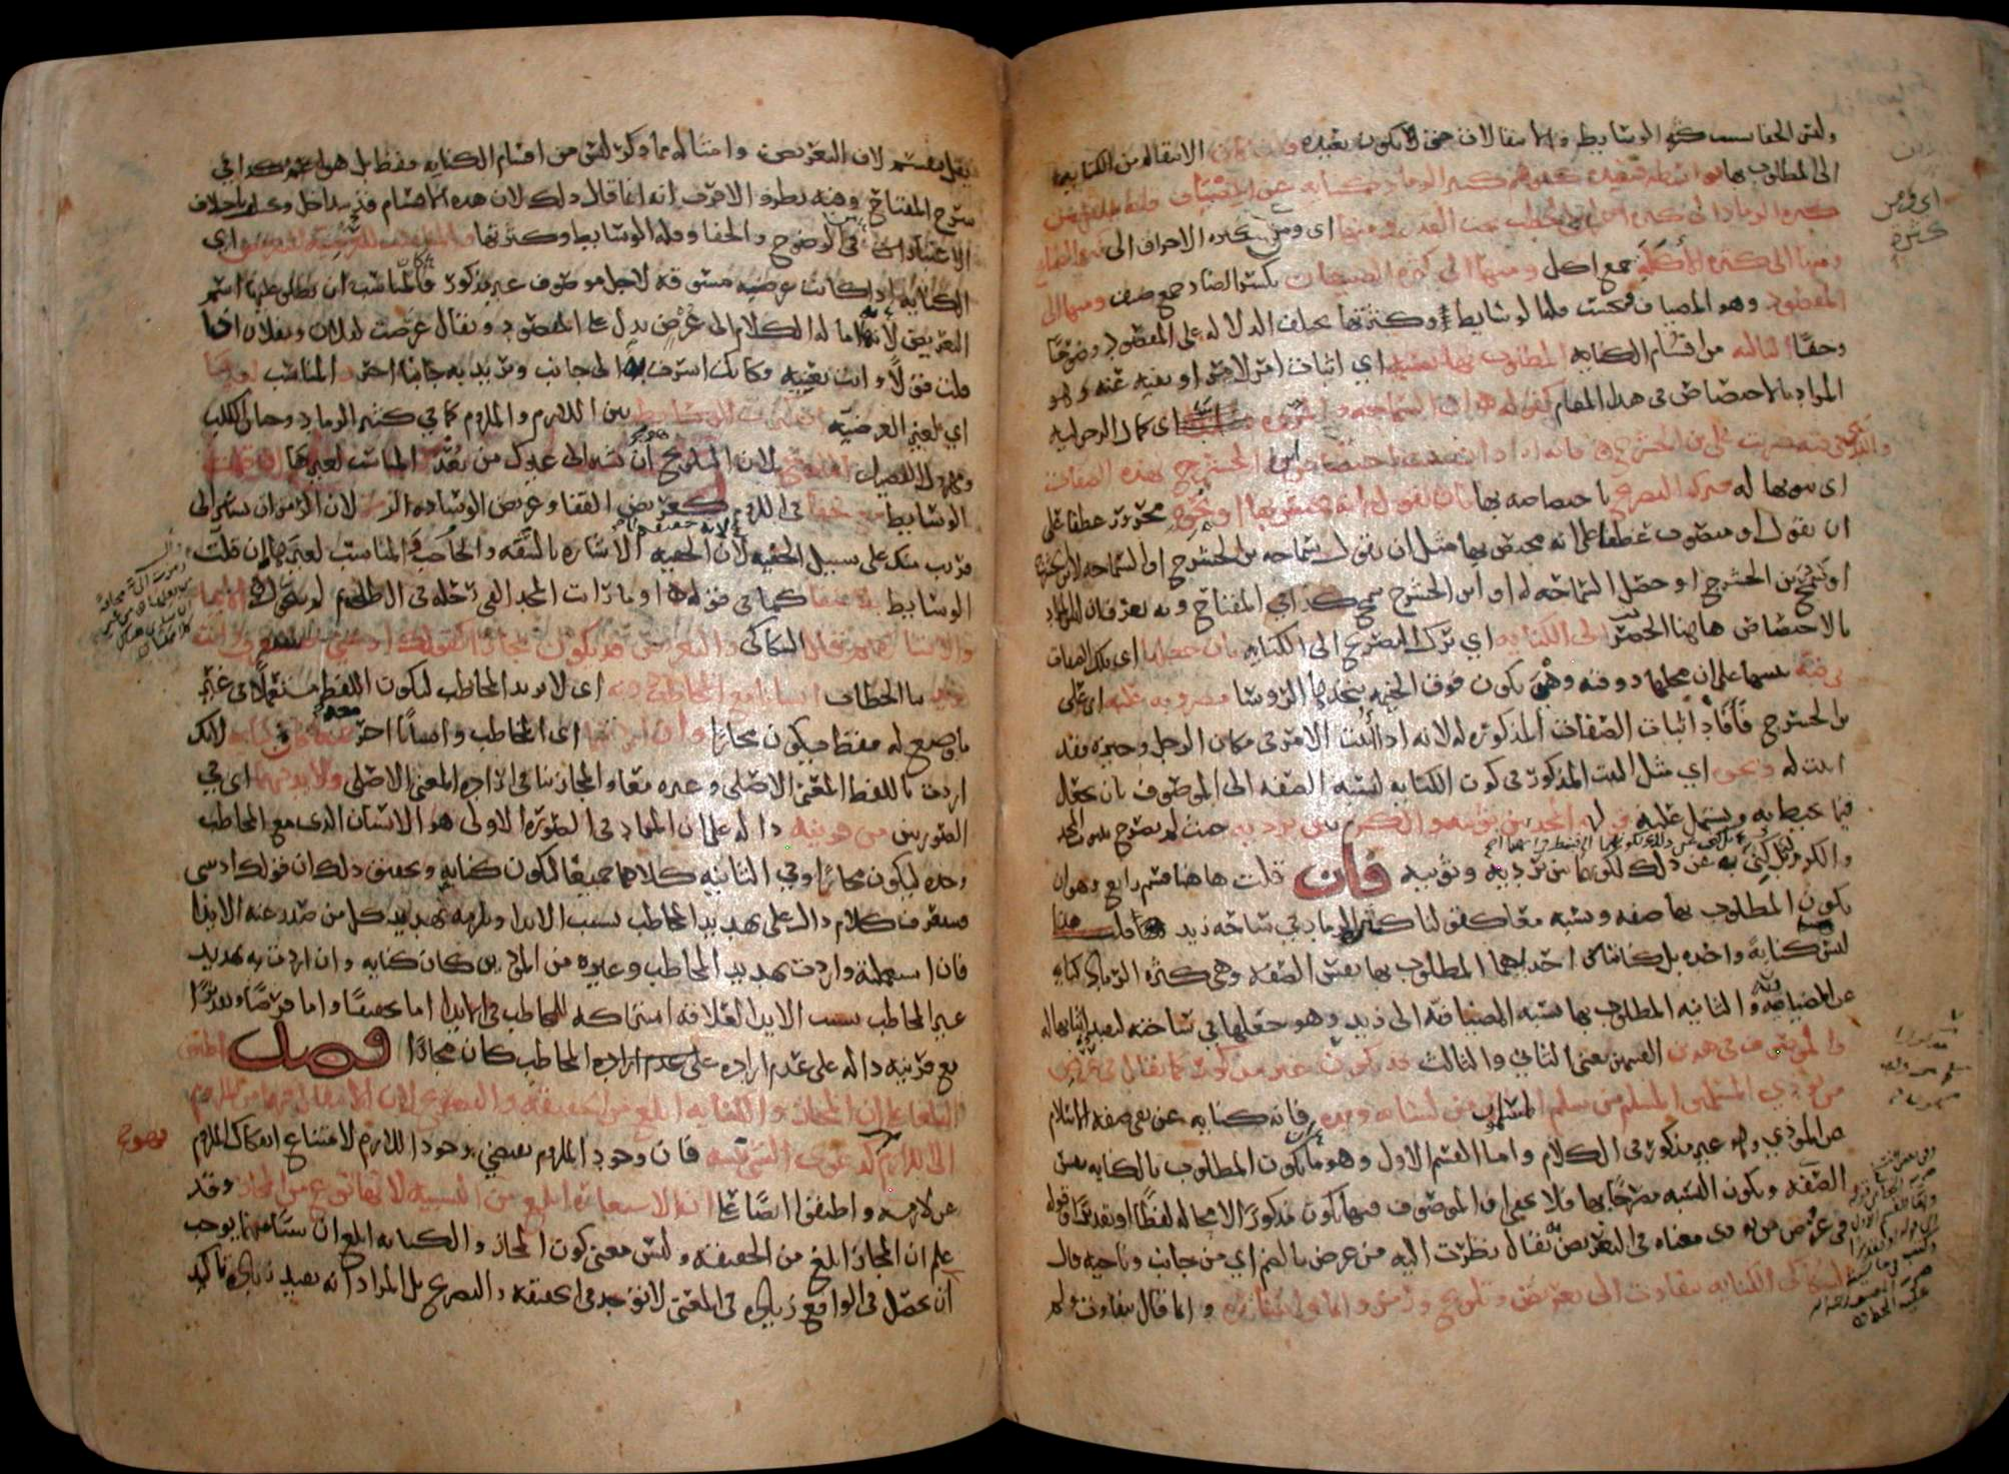 وليس الخفا بسبب كثرة الوسايط والانتقالات حتى لا يكون بعيدة فان كان الانتقال من الكناية
الى المطلوب بها بواسطة فبعيدة كقولهم كثير الرماد كناية عن المضياف فانه ينتقل من
كثرة الرماد الى كثرة احراق الحطب تحت القدر ومنها اى ومن كثرة الاحراق الى كثرة الطبايخ
ومنها الى كثرة الأكلة جمع اكل ومنها الى كثرة الضيفان بكسر الضاد جمع ضيف ومنها الى
المقصود وهو المضياف وبحسب قلة الوسايط وكثرتها يختلف الدلالة على المقصود وضوحا
وخفا الثالثة من اقسام الكناية المطلوب بها نسبة اي اثبات امر لامر او نفيه عنه وهو
المراد بالاختصاص في هذا المقام كقوله ان السماحة والمروة اى كمال الرجولية
والندى في قبة ضربت على ابن الحشرج فانه اراد ان يثبت اختصاص ابن الحشرج بهذه الصفات
اى ثبوتها له فترك التصريح باختصاصه بها بان يقول انه مختص بها او نحوه مجرور عطفا على
ان يقول او منصوب عطفا على انه مختص بها مثل ان يقول سماحة ابن الحشرج او السماحة لابن الحشرج
او سمح ابن الحشرج او حصل السماحة له او ابن الحشرج سمح كذا في المفتاح وبه يعرف ان المراد
بالاختصاص هاهنا الحصر الى الكناية اي ترك التصريح الى الكناية بان جعلها اى تلك الصفات
في قبة تنبيها على ان محلها ذو قبة وهي يكون فوق الخيمة يتخذها الروسا مضروبة عليه اى على
ابن الحشرج فأفاد اثبات الصفات المذكورة له لانه اذا اثبت الامر في مكان الرجل وحيزه فقد
اثبت له ونحوه اي مثل البيت المذكور في كون الكناية لنسبة الصفة الى الموصوف بان تجعل
فيما يحيط به ويشتمل عليه قولهم المجد بين ثوبيه والكرم بين برديه حيث لم يصرح بثبوت المجد
والكرم له بل كنى به عن ذلك لكونهما بين برديه وثوبيه فان قلت هاهنا قسم رابع وهو ان
يكون المطلوب بها صفة ونسبة معا كقولنا كثر الرماد في ساحة زيد قلت هذا
ليس كناية واحدة بل كنايتان احديهما المطلوب بها نفس الصفة وهي كثرة الرماد كناية
عن المضيافية والثانية المطلوب بها نسبة المضيافية الى زيد وهو جعلها في ساحته ليفيد اثباتها له
والموصوف في هذين القسمين يعني الثاني والثالث قد يكون غير مذكور كما يقال في عرض
من يؤذي المسلمين المسلم من سلم المسلمون من لسانه ويده فانه كناية عن نفي صفة الاسلام
عن الموذي وهو غير مذكور في الكلام واما القسم الاول وهو ما يكون المطلوب بالكناية نفس
الصفة ويكون النسبة مصرحا بها فلا يخفى ان الموصوف فيها يكون مذكورا لا محالة لفظا او تقديرا وقوله
في عرض من يوذي معناه في التعريض يقال نظرت اليه من عرض بالضم اي من جانب وناحية قال
السكاكي الكناية تتفاوت الى تعريض وتلويح ورمز وايما واشارة وانما قال تتفاوت ولم
يقل تنقسم لان التعريض وامثاله مما ذكر ليس من اقسام الكناية فقط بل هو اعم كذا في
شرح المفتاح وفيه نظر والاقرب انه انما قال ذلك لان هذه الاقسام قد تتداخل وتختلف باختلاف
الاعتبارات في الوضوح والخفا وقلة الوسايط وكثرتها والمناسب للعرضية التعريض اي
الكناية اذا كانت عرضية مسوقة لاجل موصوف غير مذكور فالمناسب ان يطلق عليها اسم
التعريض لانه امالة الكلام الى عرض يدل على المقصود ويقال عرضت لفلان وبفلان اذا
قلت قولا وانت تعنيه وكانك اشرت به الى جانب وتريد به جانبا اخر والمناسب لغيرها
اي لغير العرضية ان كثرت الوسايط بين اللازم والملزوم كما في كثير الرماد وجبان الكلب
ومهزول الفصيل التلويح لان التلويح ان تشير الى غيرك من بعد المناسب لغيرها ان قلت
الوسايط مع خفا في اللزوم كعريض القفا وعريض الوسادة الرمز لان الرمز ان تشير الى
قريب منك على سبيل الخفية لان الحقيقة الاشارة بالشفة والحاجب والمناسب لغيرها ان قلت
الوسايط بلا خفا كما في قوله اوما رأيت المجد القى رحله في آل طلحة ثم لم يتحول الايما
والاشارة ثم قال السكاكي والتعريض قد يكون مجازا كقولك اذيتني فستعرف وانت
تريد بتا الخطاب انسانا مع المخاطب دونه اى لا تريد المخاطب ليكون اللفظ مستعملا في غير
ما وضع له فقط فيكون مجازا وان اردتهما اى المخاطب وانسانا اخر معه كان كناية لانك
اردت باللفظ المعنى الاصلي وغيره معا والمجاز ينافي ارادة المعنى الاصلي ولا بد فيهما اى في
الصورتين من قرينة دالة على ان المراد في الصورة الاولى هو الانسان الذي مع المخاطب
وحده ليكون مجازا وفي الثانية كلاهما جميعا ليكون كناية وتحقيق ذلك ان قولك اذيتني
فستعرف كلام دال على تهديد المخاطب بسبب الايذا ويلزمه تهديد كل من صدر عنه الايذا
فان استعملته واردت تهديد المخاطب وغيره من الموذين كان كناية وان اردت به تهديد
غير المخاطب بسبب الايذا لعلاقة اشتراكه للمخاطب في الايذا اما تحقيقا واما فرضا وتقديرا
مع قرينة دالة على عدم ارادة المخاطب كان مجازا فصل اطبق
البلغا على ان المجاز والكناية ابلغ من الحقيقة والتصريح لان الانتقال فيهما من الملزوم
الى اللازم فهو كدعوى الشي ببينة فان وجود الملزوم يقتضي وجود اللازم لامتناع انفكاك الملزوم
عن لازمه واطبقوا ايضا على ان الاستعارة ابلغ من التشبيه لانها نوع من المجاز وقد
علم ان المجاز ابلغ من الحقيقة وليس معنى كون المجاز والكناية ابلغ ان شيا منهما يوجب
ان يحصل في الواقع زيادة في المعنى لا توجد في الحقيقة والتصريح بل المراد انه يفيد زيادة تاكيد